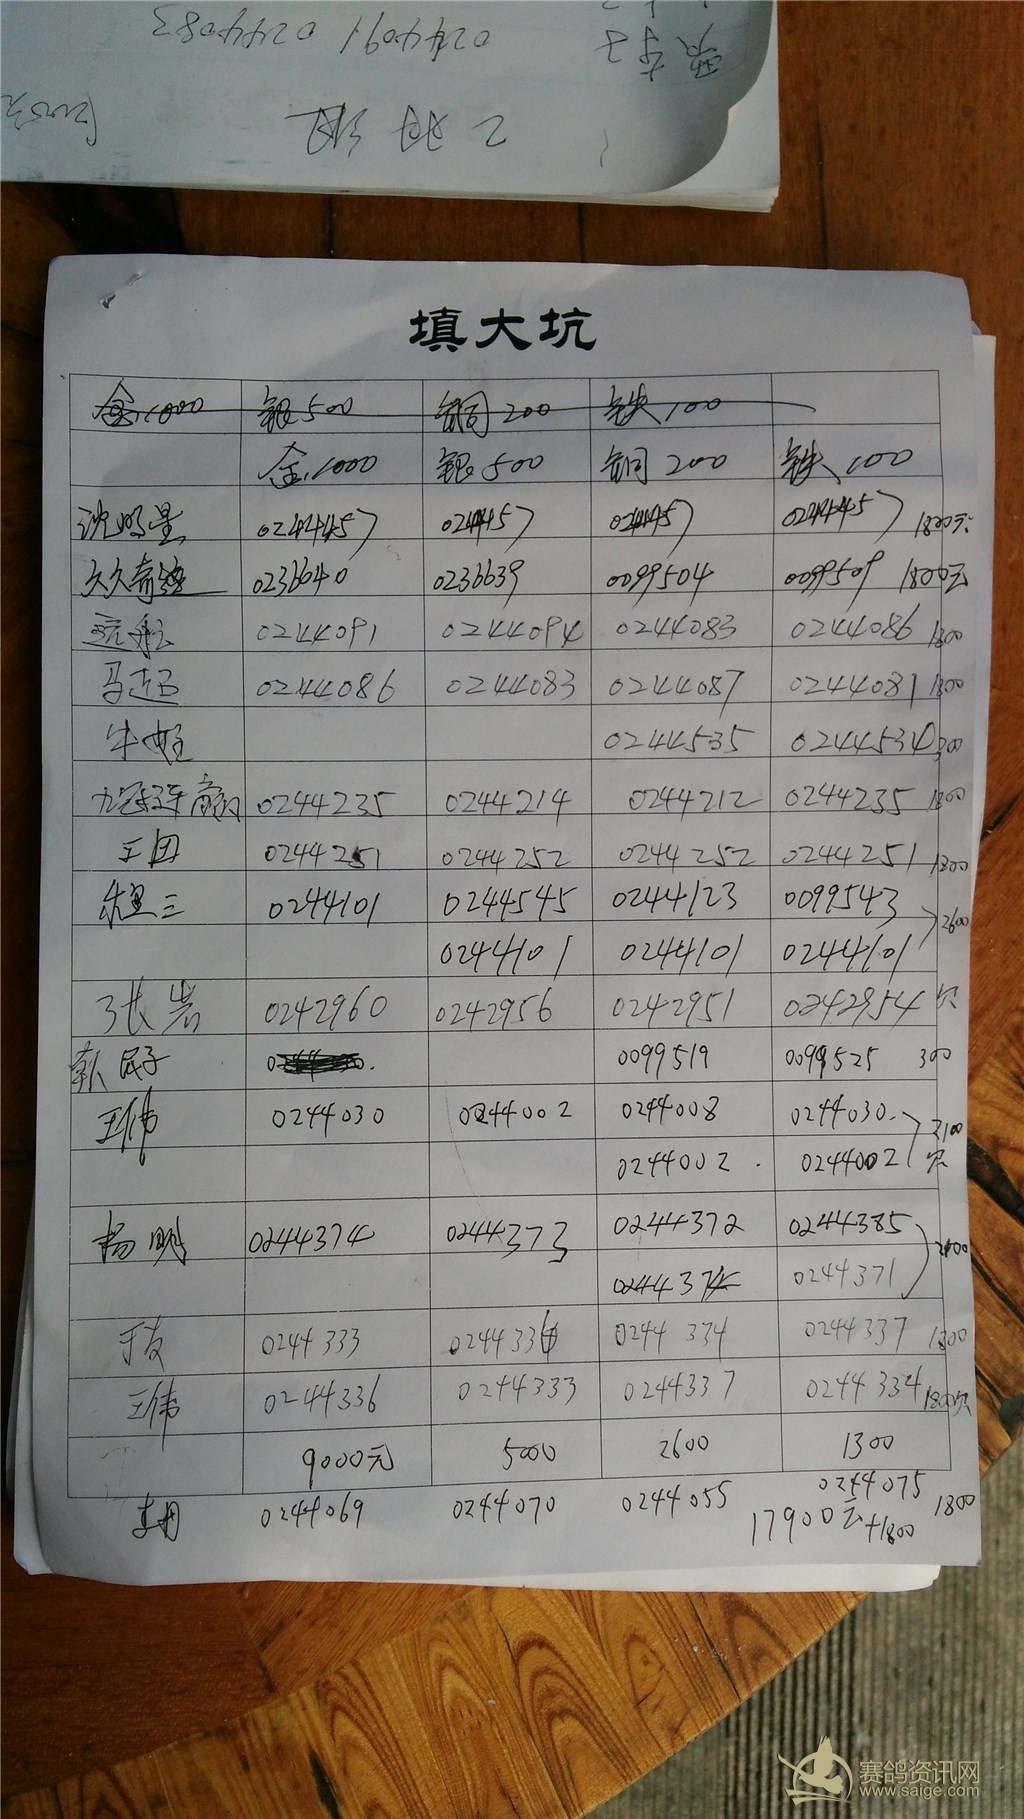 0244091 0244083
填大坑
金1000 银500 铜200 铁100
金1000 银500 铜200 铁100
沈明星 0244457 0244457 0244457 0244457 1800元
久久奇鸽 0236640 0236639 0099504 0099509 1800元
远航 0244091 0244094 0244083 0244086 1800
马连玉 0244086 0244083 0244087 0244081 1800
0244535 0244534 300
0244235 0244214 0244212 0244235 1800
王团 0244251 0244252 0244252 0244251 1800
三 0244101 0244545 0244123 0099543 2600
0244101 0244101 0244101
张岩 0242960 0242956 0242951 0242954 欠
0099519 0099525 300
王伟 0244030 0244002 0244008 0244030 2100
0244002 0244002 欠
杨明 0244374 0244373 0244372 0244385 2100
0244374 0244371
于友 0244333 0244336 0244334 0244337 1800
王伟 0244336 0244333 0244337 0244334 1800欠
9000元 5000 2600 1300
0244069 0244070 0244055 0244075 1800
17900元+1800
赛鸽资讯网
www.saige.com